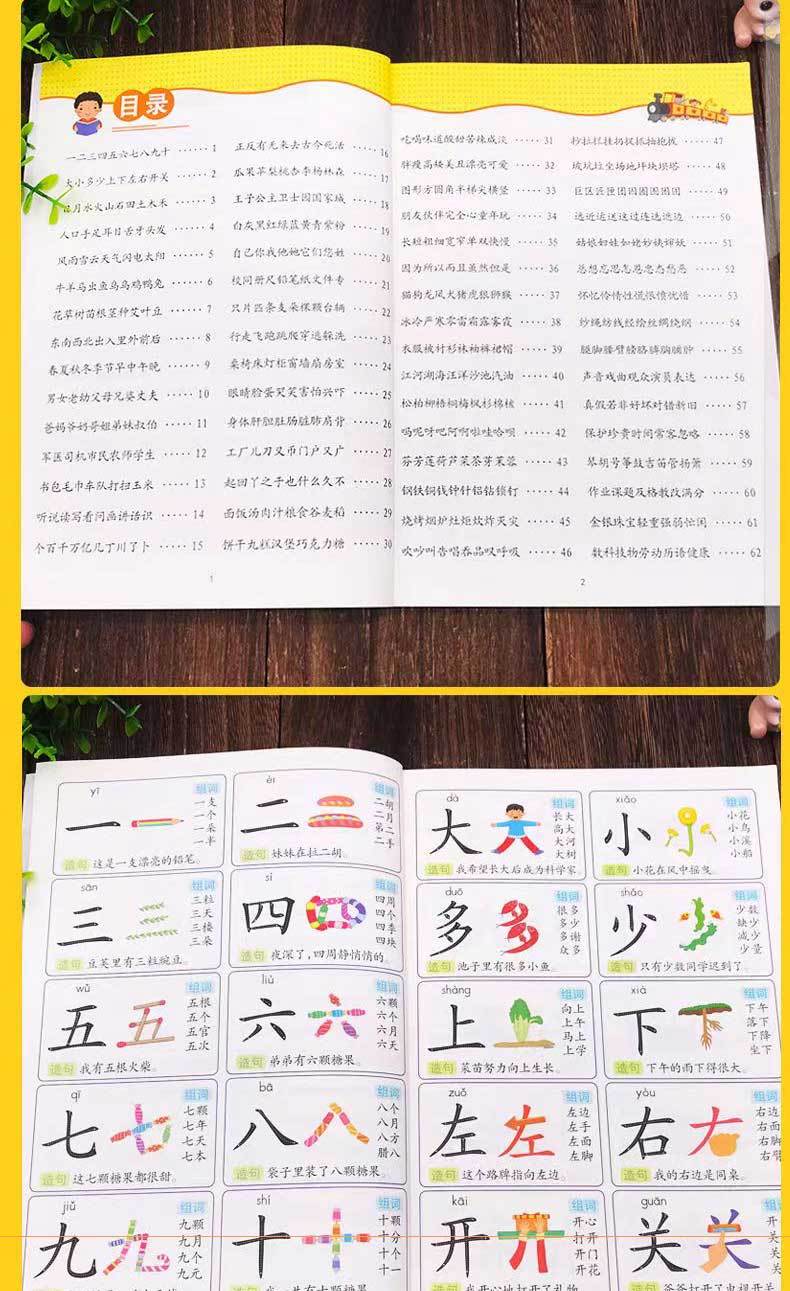 目录
一二三四五六七八九十 ······ 1
大小多少上下左右开关 ······ 2
日月水火山石田土木禾 ······ 3
人口手足耳目舌牙头发 ······ 4
风雨雪云天气闪电太阳 ······ 5
牛羊马出鱼鸟乌鸡鸭兔 ······ 6
花草树苗根茎种艾叶豆 ······ 7
东南西北出入里外前后 ······ 8
春夏秋冬季节早中午晚 ······ 9
男女老幼父母兄婆丈夫 ······ 10
爸妈爷奶哥姐弟妹叔伯 ····· 11
军医司机市民农师学生 ····· 12
书包毛巾车队打扫玉米 ····· 13
听说读写看问画讲语识 ····· 14
个百千万亿几丁川了卜 ····· 15
1
正反有无来去古今死活 ····· 16
瓜果苹梨桃杏李杨林森 ····· 17
王子公主卫士园国家城 ····· 18
白灰黑红绿蓝黄青紫粉 ····· 19
自己你我他她它们您姓 ····· 20
校同册尺铅笔纸文件专 ····· 21
只片匹条支朵棵颗台辆 ····· 22
行走飞跑跳爬穿逃躲洗 ····· 23
桌椅床灯柜窗墙扇房室 ····· 24
眼睛脸蛋哭笑害怕兴吓 ····· 25
身体肝胆肚肠脏肺肩背 ····· 26
工厂儿刀又币门户叉广 ····· 27
起回丫之子也什么久不 ····· 28
面饭汤肉汁粮食谷麦稻 ····· 29
饼干丸糕汉堡巧克力糖 ····· 30
吃喝味道酸甜苦辣咸淡 ····· 31
胖瘦高矮美丑漂亮可爱 ····· 32
图形方圆角半梯尖横竖 ····· 33
朋友伙伴完全心童年玩 ····· 34
长短粗细宽窄单双快慢 ····· 35
因为所以而且虽然但是 ····· 36
猫狗龙凤犬猪虎狼狮猴 ····· 37
冰冷严寒零雷霜露雾霞 ····· 38
衣服被衬衫袜袖裤裙帽 ····· 39
江河湖海汪洋沙池汽油 ····· 40
松柏柳梧桐梅枫杉棉核 ····· 41
吗呢呀吧阿啊啦哇哈呗 ····· 42
芬芳莲荷芦菜茶芽茉蓉 ····· 43
钢铁铜钱钟针铝钻锁钉 ····· 44
烧烤烟炉灶炬炊炸灭灾 ····· 45
吹吵叫告唱吞品叹呼吸 ····· 46
2
抄拉拦挂扔捉抓抽抱拔 ····· 47
坡坑垃圾场地坪块坝塔 ····· 48
49
50
51
52
53
54
55
声音戏曲观众演员表达 ····· 56
真假若非好坏对错新旧 ····· 57
保护珍贵时间常客忽略 ····· 58
琴胡号筝鼓吉笛管扬箫 ····· 59
作业课题及格教改满分 ····· 60
金银珠宝轻重强弱忙闲 ····· 61
数科技物劳动历语健康 ····· 62
yī
组词
一
一支
一个
一朵
一半
造句 这是一支漂亮的铅笔。
èr
组词
二
二胡
二月
第二
二手
造句 妹妹在拉二胡。
sān
组词
三
三粒
三天
三楼
三朵
造句 豆荚里有三粒豌豆。
sì
组词
四
四周
四个
四季
四块
造句 夜深了，四周静悄悄的。
wǔ
组词
五
五根
五个
五官
五次
造句 我有五根火柴。
liù
组词
六
六颗
六个
六月
六天
造句 弟弟有六颗糖果。
qī
组词
七
七颗
七年
七天
七本
造句 这七颗糖果都很甜。
bā
组词
八
八个
八月
八方
腊八
造句 袋子里装了八颗糖果。
jiǔ
组词
九
九颗
九月
九个
九元
shí
组词
十
十颗
十分
十个
十一
dà
组词
大
长大
高大
大河
大树
造句 我希望长大后成为科学家。
xiǎo
组词
小
小花
小鸟
小溪
小船
造句 小花在风中摇曳。
duō
组词
多
很多
多少
多谢
众多
造句 池子里有很多小鱼。
shǎo
组词
少
少数
缺少
减少
少量
造句 只有少数同学迟到了。
shàng
组词
上
向上
上午
马上
上学
造句 菜苗努力向上生长。
xià
组词
下
下午
落下
下降
坐下
造句 下午的雨下得很大。
zuǒ
组词
左
左边
左手
左面
左脚
造句 这个路牌指向左边。
yòu
组词
右
右边
右面
右脚
右臂
造句 我的右边是同桌。
kāi
组词
开
开心
打开
开门
开花
造句 我开心地打开了礼物
guān
组词
关
造句 爸爸打开了电视开关